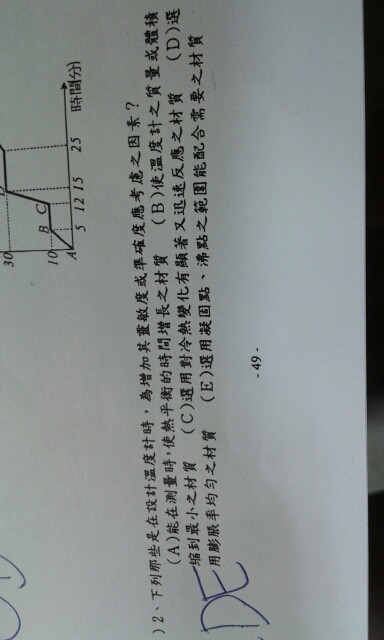 30
10
A
B
C
5
12
15
25
時間(分)
)2、下列那些是在設計溫度計時，為增加其靈敏度或準確度應考慮之因素？
(A)能在測量時,使熱平衡的時間增長之材質 (B)使溫度計之質量或體積
縮到最小之材質 (C)選用對冷熱變化有顯著又迅速反應之材質 (D)選
用膨脹率均勻之材質 (E)選用凝固點、沸點之範圍能配合需要之材質
DE
- 49 -